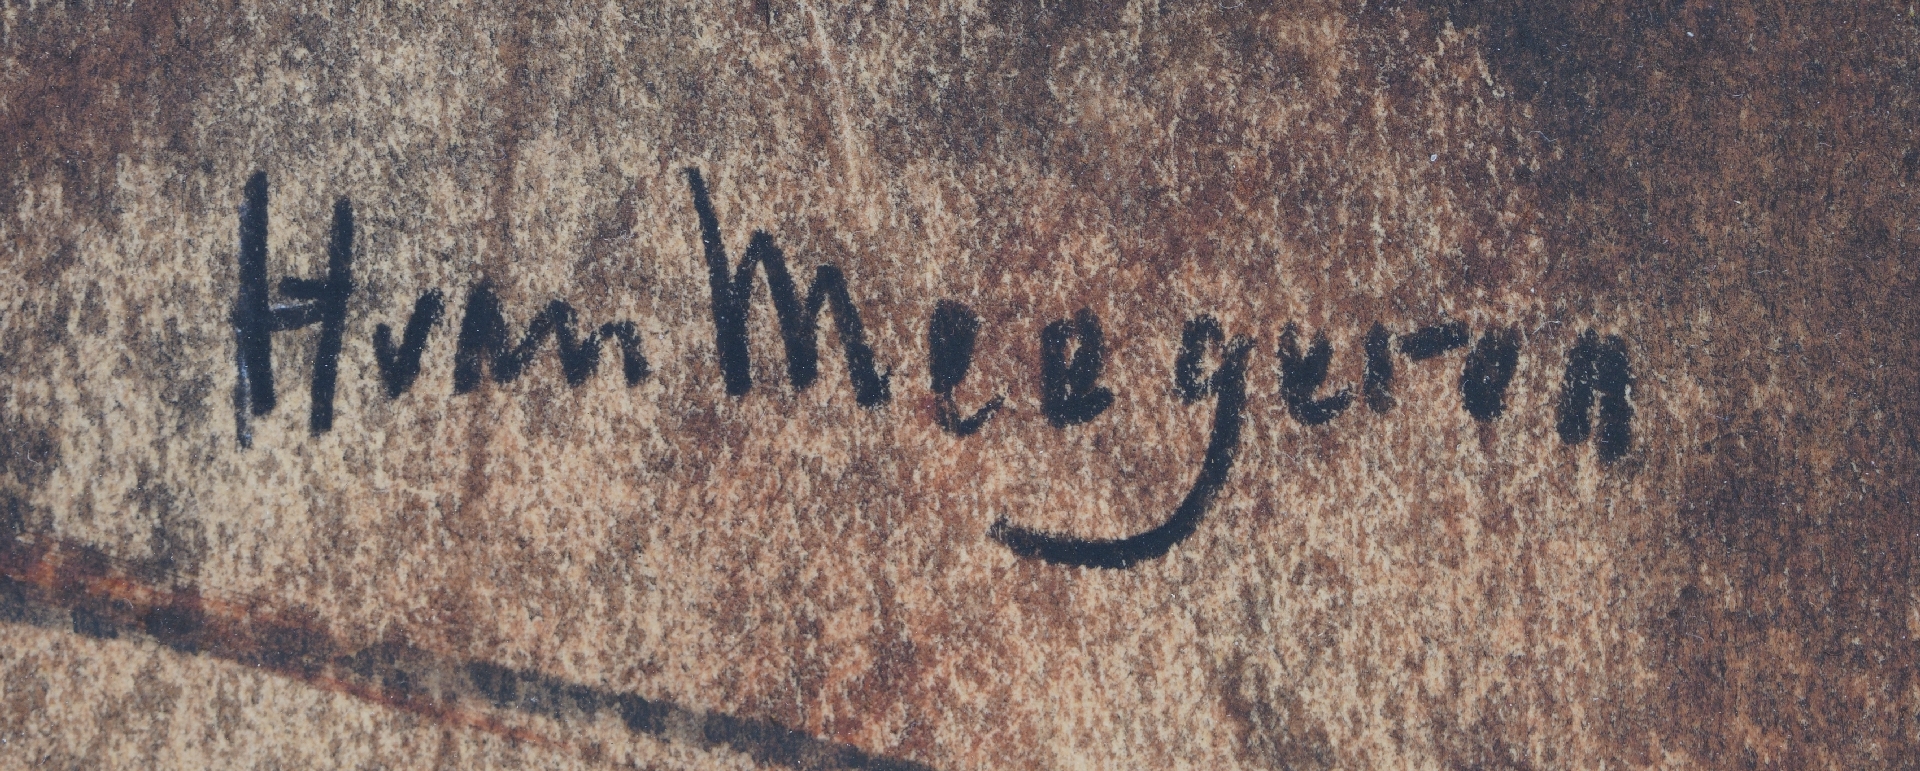 H van Meegeren